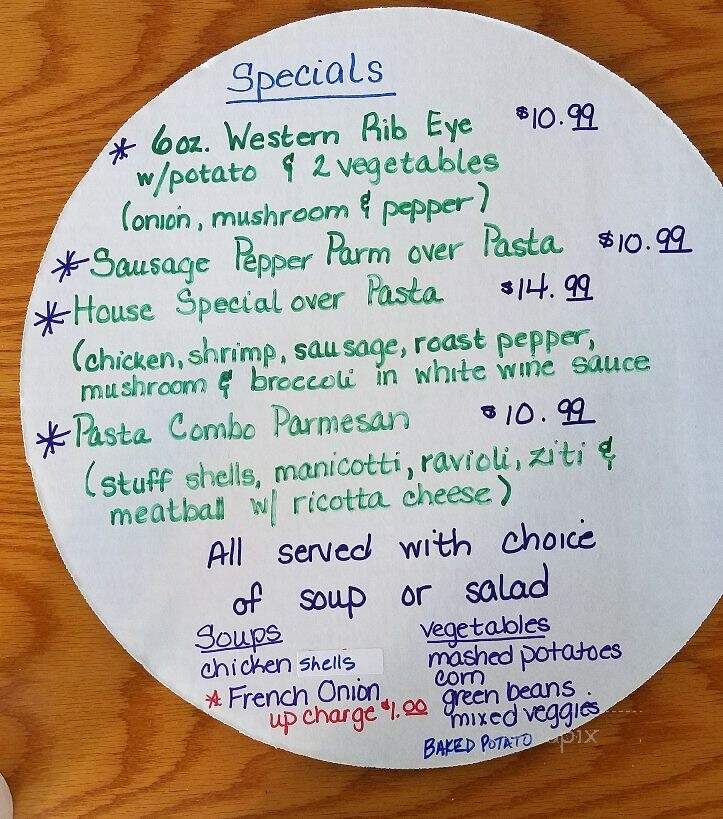 Specials
* 6oz. Western Rib Eye $10.99
w/potato & 2 vegetables
(onion, mushroom & pepper)
* Sausage Pepper Parm over Pasta $10.99
* House Special over Pasta $14.99
(chicken, shrimp, sausage, roast pepper,
mushroom & broccoli in white wine sauce
* Pasta Combo Parmesan $10.99
(stuff shells, manicotti, ravioli, ziti &
meatball w/ ricotta cheese)
All served with choice
of soup or salad
Soups
chicken shells
* French Onion
up charge $1.00
vegetables
mashed potatoes
corn
green beans.
mixed veggies
BAKED POTATO